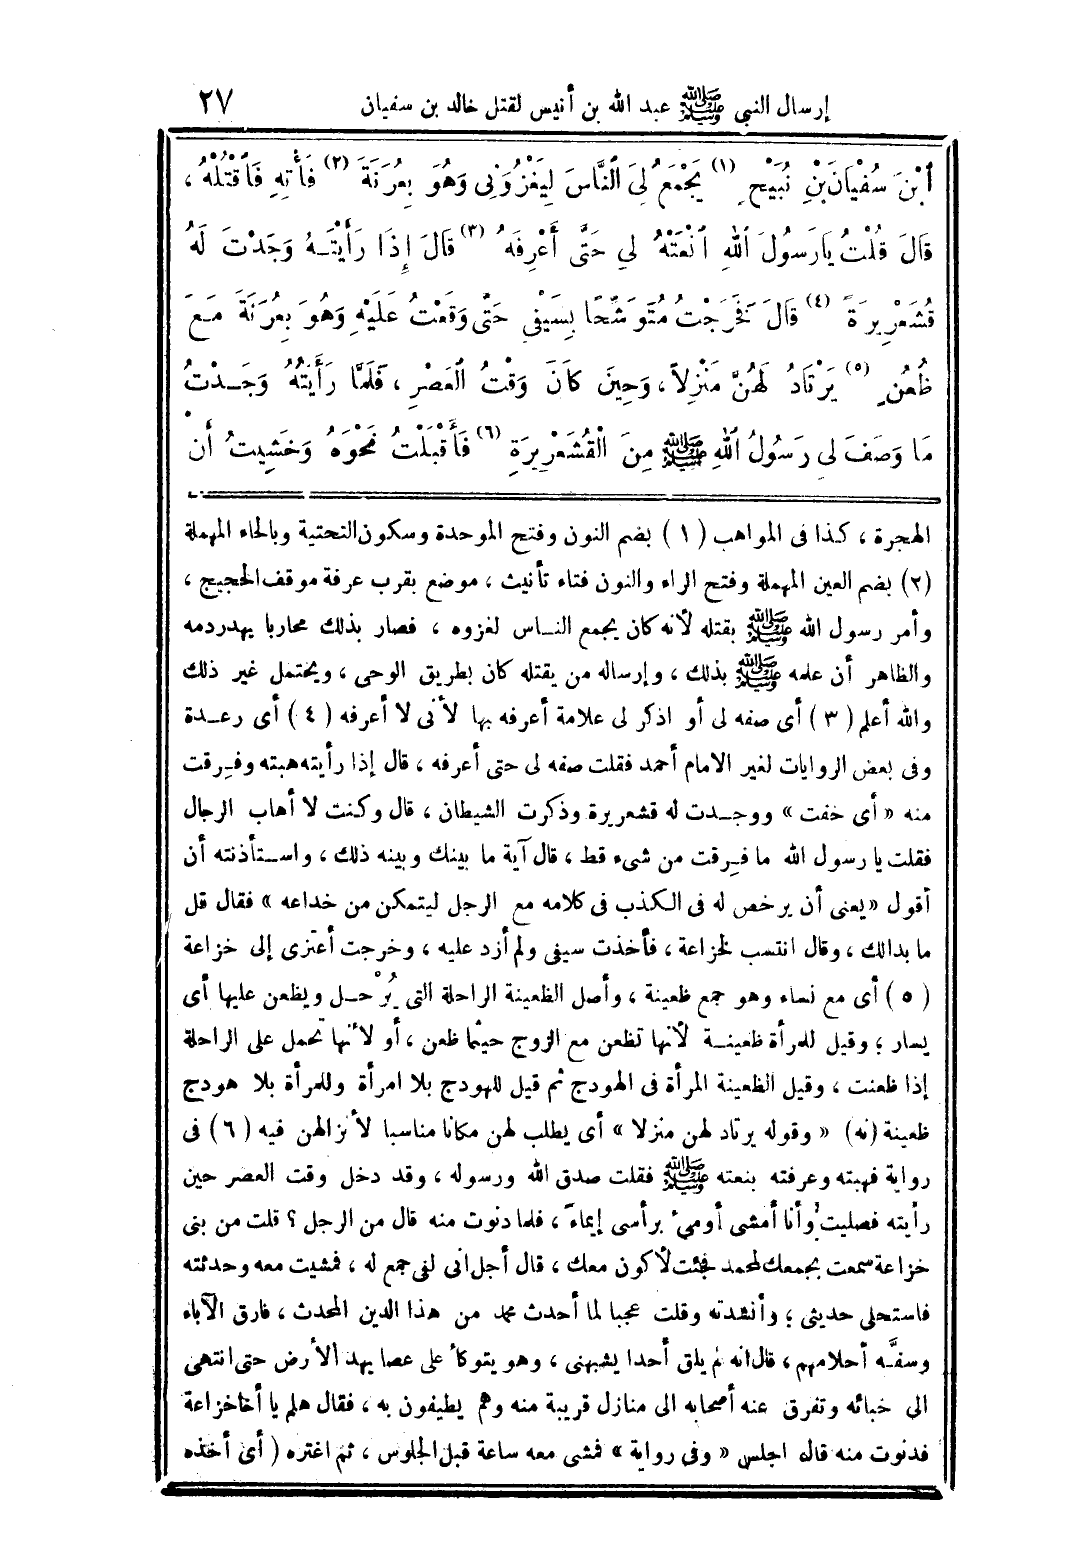 إرسال النبي ﷺ عبد الله بن أنيس لقتل خالد بن سفيان ٢٧
ٱبْنَ سُفْيَانَ بْنِ نُبَيْحٍ (١) يَجْمَعُ لِىَ النَّاسَ لِيَغْزُوَنِى وَهُوَ بِعُرَنَةَ (٢) فَأْتِهِ فَاقْتُلْهُ ،
قَالَ قُلْتُ يَا رَسُولَ اللهِ ٱنْعَتْهُ لِي حَتَّى أَعْرِفَهُ (٣) قَالَ إِذَا رَأَيْتَهُ وَجَدْتَ لَهُ
قُشَعْرِيرَةً (٤) قَالَ فَخَرَجْتُ مُتَوَشِّحًا بِسَيْفِى حَتَّى وَقَعْتُ عَلَيْهِ وَهُوَ بِعُرَنَةَ مَعَ
ظُعُنٍ (٥) يَرْتَادُ لَهُنَّ مَنْزِلاً ، وَحِينَ كَانَ وَقْتُ الْعَصْرِ ، فَلَمَّا رَأَيْتُهُ وَجَدْتُ
مَا وَصَفَ لِى رَسُولُ اللهِ ﷺ مِنَ الْقُشَعْرِيرَةِ (٦) فَأَقْبَلْتُ نَحْوَهُ وَخَشِيتُ أَنْ
الهجرة ، كذا فى المواهب (١) بضم النون وفتح الموحدة وسكون التحتية وبالحاء المهملة
(٢) بضم العين المهملة وفتح الراء والنون فتاء تأنيث ، موضع بقرب عرفة موقف الحجيج ،
وأمر رسول الله ﷺ بقتله لأنه كان يجمع الناس لغزوه ، فصار بذلك محاربا يهدر دمه
والظاهر أن علمه ﷺ بذلك ، وإرساله من يقتله كان بطريق الوحى ، ويحتمل غير ذلك
والله أعلم (٣) أى صفه لى أو اذكر لى علامة أعرفه بها لأنى لا أعرفه (٤) أى رعدة
وفى بعض الروايات لغير الامام أحمد فقلت صفه لى حتى أعرفه ، قال إذا رأيته هبته وفرِقت
منه « أى خفت » ووجدت له قشعريرة وذكرت الشيطان ، قال وكنت لا أهاب الرجال
فقلت يا رسول الله ما فرِقت من شىء قط ، قال آية ما بينك وبينه ذلك ، واستأذنته أن
أقول «يعنى أن يرخص له فى الكذب فى كلامه مع الرجل ليتمكن من خداعه » فقال قل
ما بدالك ، وقال انتسب لخزاعة ، فأخذت سيفى ولم أزد عليه ، وخرجت أعتزى إلى خزاعة
(٥) أى مع نساء وهو جمع ظعينة ، وأصل الظعينة الراحلة التى يُرْحل ويظعن عليها أى
يسار ؛ وقيل للمرأة ظعينة لأنها تظعن مع الزوج حيثما ظعن ، أو لأنها تحمل على الراحلة
إذا ظعنت ، وقيل الظعينة المرأة فى الهودج ثم قيل للهودج بلا امرأة وللمرأة بلا هودج
ظعينة (نه) « وقوله يرتاد لهن منزلا » أى يطلب لهن مكانا مناسبا لأنزالهن فيه (٦) فى
رواية فهبته وعرفته بنعته ﷺ فقلت صدق الله ورسوله ، وقد دخل وقت العصر حين
رأيته فصليت وأنا أمشى أومئ برأسى إيماءً ، فلما دنوت منه قال من الرجل ؟ قلت من بنى
خزاعة سمعت بجمعك لمحمد فجئت لأكون معك ، قال أجل انى لفى جمع له ، فمشيت معه وحدثته
فاستحلى حديثى ؛ وأنشدته وقلت عجبا لما أحدث محمد من هذا الدين المحدث ، فارق الآباء
وسفَّه أحلامهم ، قال انه لم يلق أحدا يشبهنى ، وهو يتوكأ على عصا يهد الأرض حتى انتهى
الى خبائه وتفرق عنه أصحابه الى منازل قريبة منه وهم يطيفون به ، فقال هلم يا أخا خزاعة
فدنوت منه قال اجلس « وفى رواية » فمشى معه ساعة قبل الجلوس ، ثم اغتره ( أى أخذه